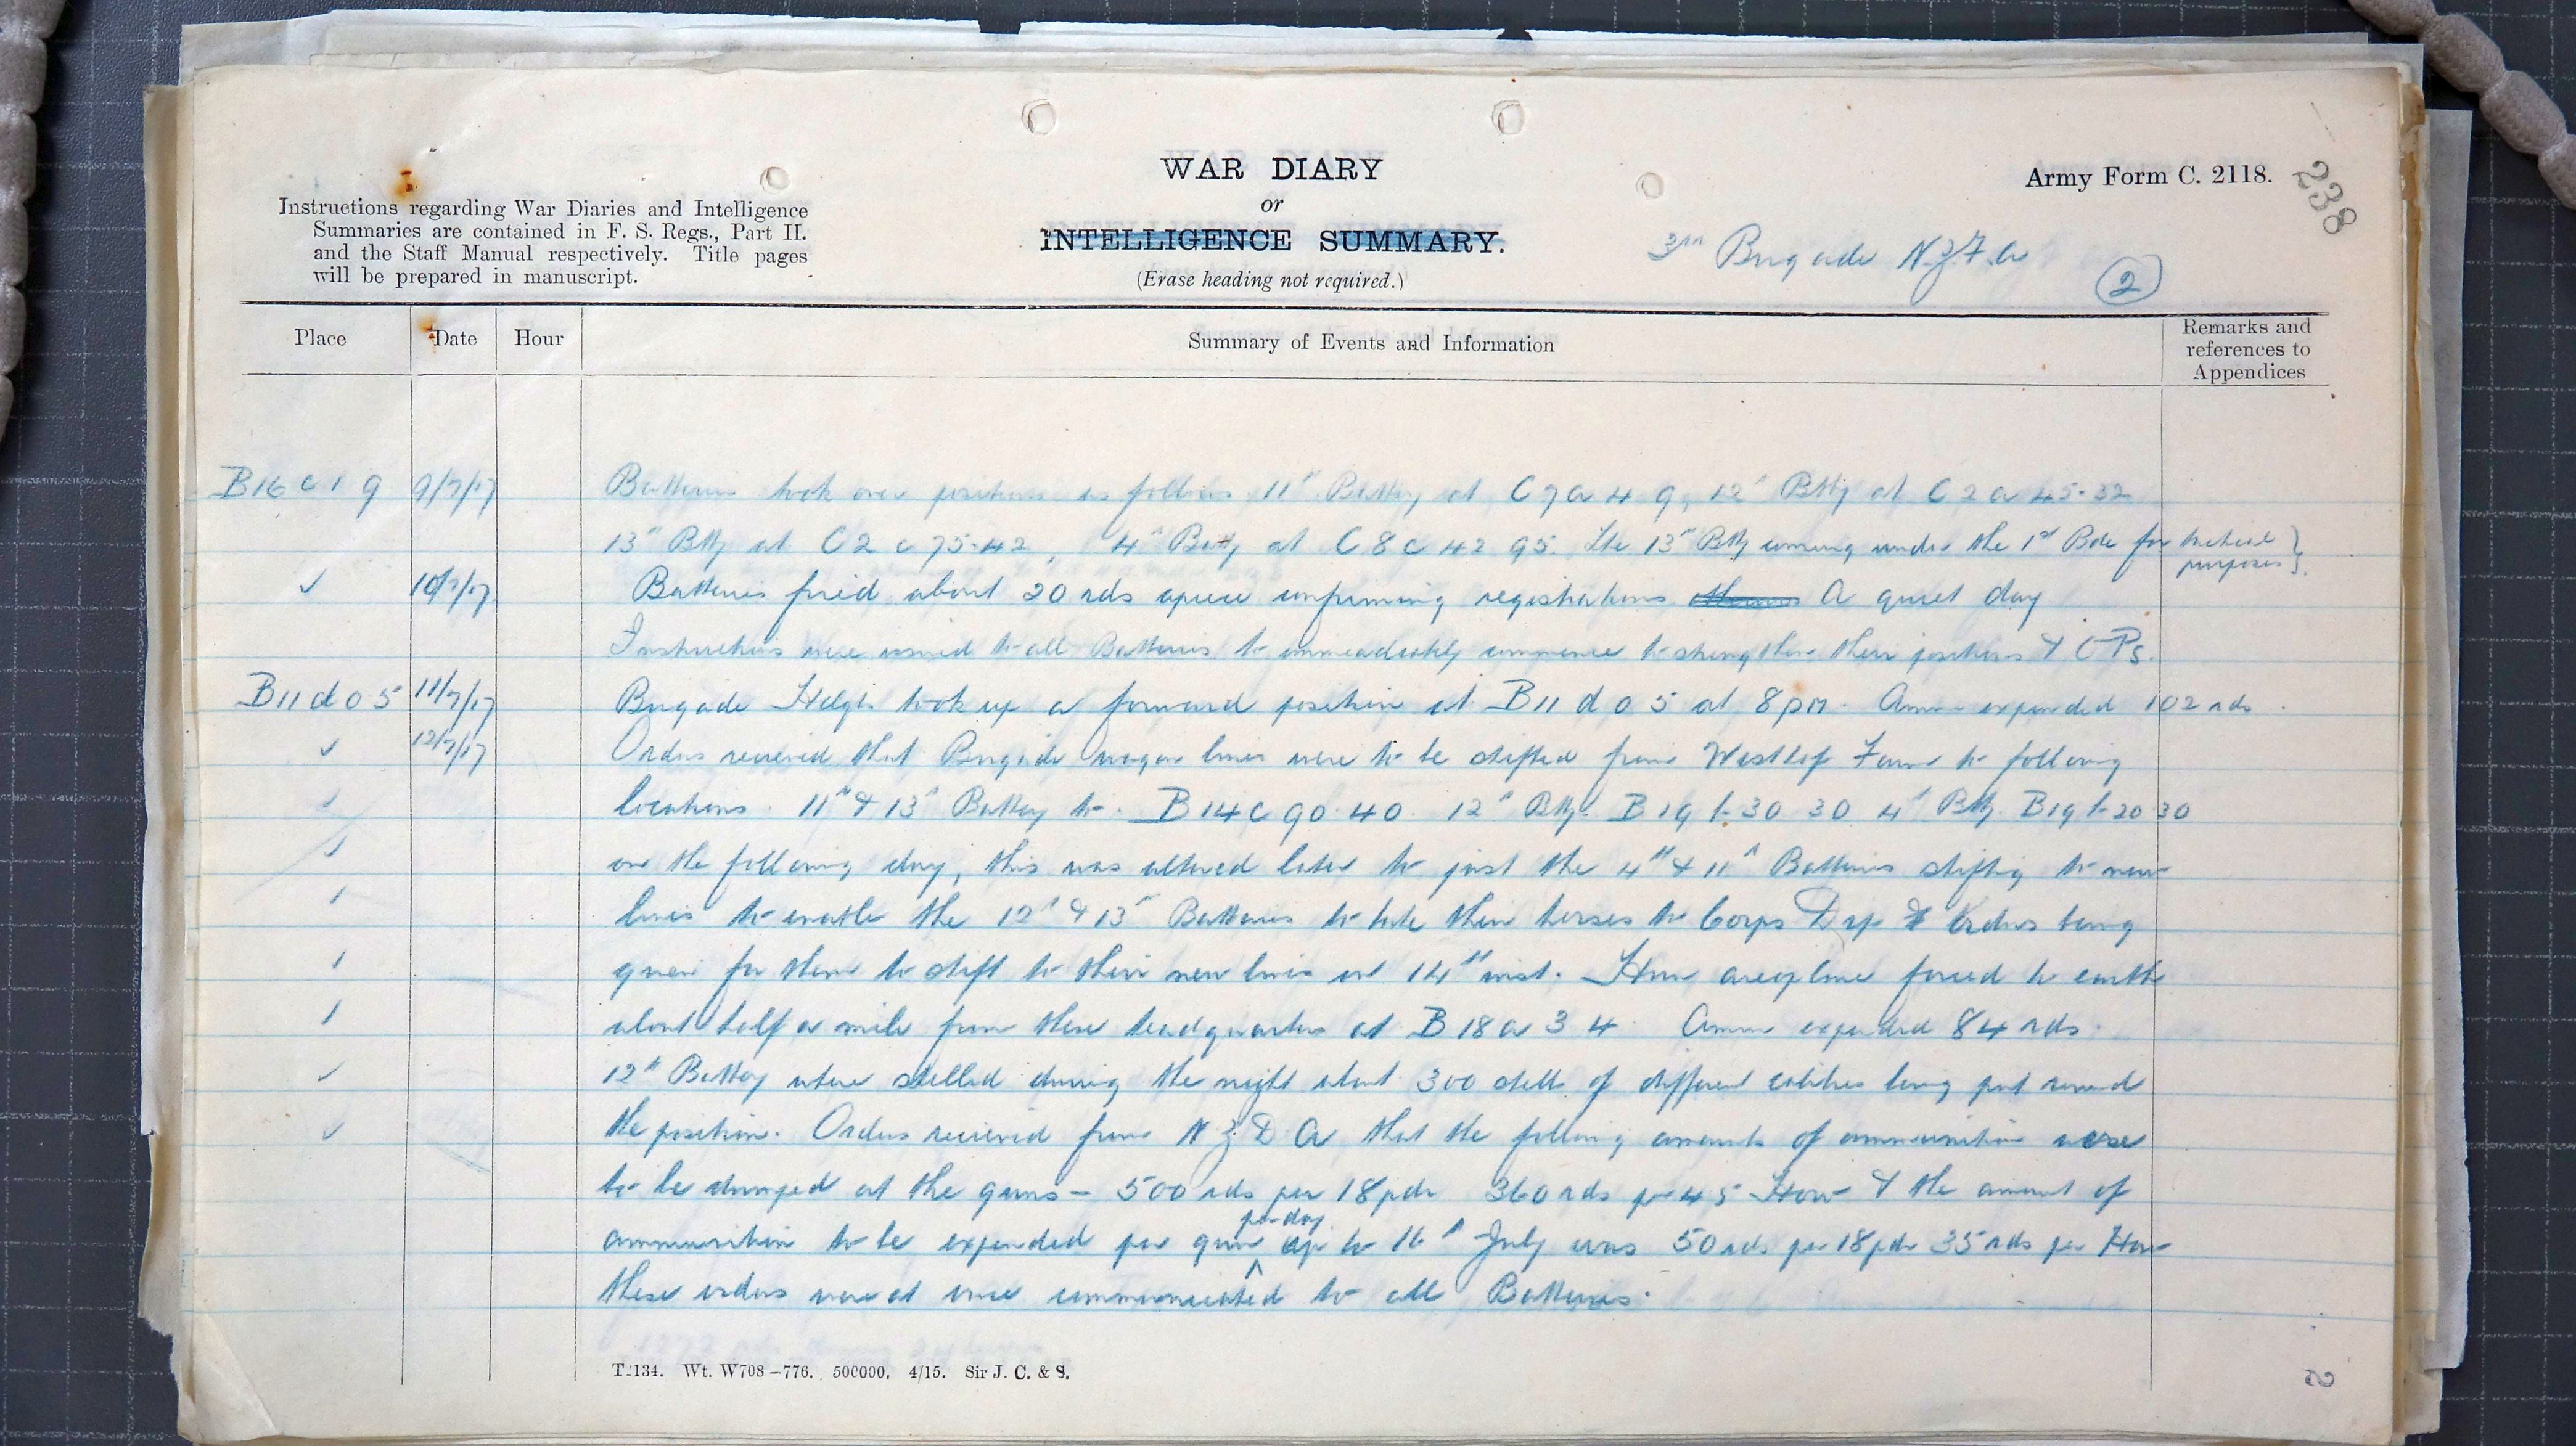 238
WAR DIARY
or
INTELLIGENCE SUMMARY.
(Erase heading not required.)
Army Form C. 2118.
Instructions regarding War Diaries and Intelligence
Summaries are contained in F. S. Regs., Part II.
and the Staff Manual respectively. Title pages
will be prepared in manuscript.
3rd Brigade N.Z.F.A
2
Place Date Hour Summary of Events and Information Remarks and
references to
Appendices
B16 c 1 9 9/7/17 Batteries took over positions as follows 11th Battery at C7a 4 9, 12th Btty at C2a 45-32
13th Btty at C2c 75-42, 4th Batty at C8c 42 95. The 13th Btty coming under the 1st Bde for tactical
purposes
✓ 10/7/17 Batteries fired about 20 rds apiece confirming registrations A quiet day
Instructions were issued to all Batteries to immeadiately commence to strengthen their positions & OPs.
B11 d 0 5 11/7/17 Brigade Hdqrs took up a forward position at B11 d 0 5 at 8pm. Amm expended 102 rds.
✓ 12/7/17 Orders recieved that Brigade wagon lines were to be shifted from Westhof Farm to following
locations. 11th & 13th Battery to B14c 90.40 12th Btty B19 b 30 30 4th Btty B19 b 20 30
on the following day, this was altered later to just the 4th & 11th Batteries shifting to new
lines to enable the 12th & 13th Batteries to take their horses to Corps Dip orders being
given for them to shift to their new lines on 14th inst. Hun aeroplane forced to earth
about half a mile from these headquarters at B18a 3 4 Amm expended 84 rds.
12th Battery were shelled during the night about 300 shells of different calibres being put round
the position. Orders recieved from N Z D A that the following amounts of ammunition were
to be dumped at the guns – 500 rds per 18pdr 360 rds per 4 5 How & the amount of
ammunition to be expended per gun per day up to 16th July was 50 rds per 18pdr 35 rds per How
these orders were at once communicated to all Batteries.
T2134. Wt. W708–776. 500000. 4/15. Sir J. C. & S.
2